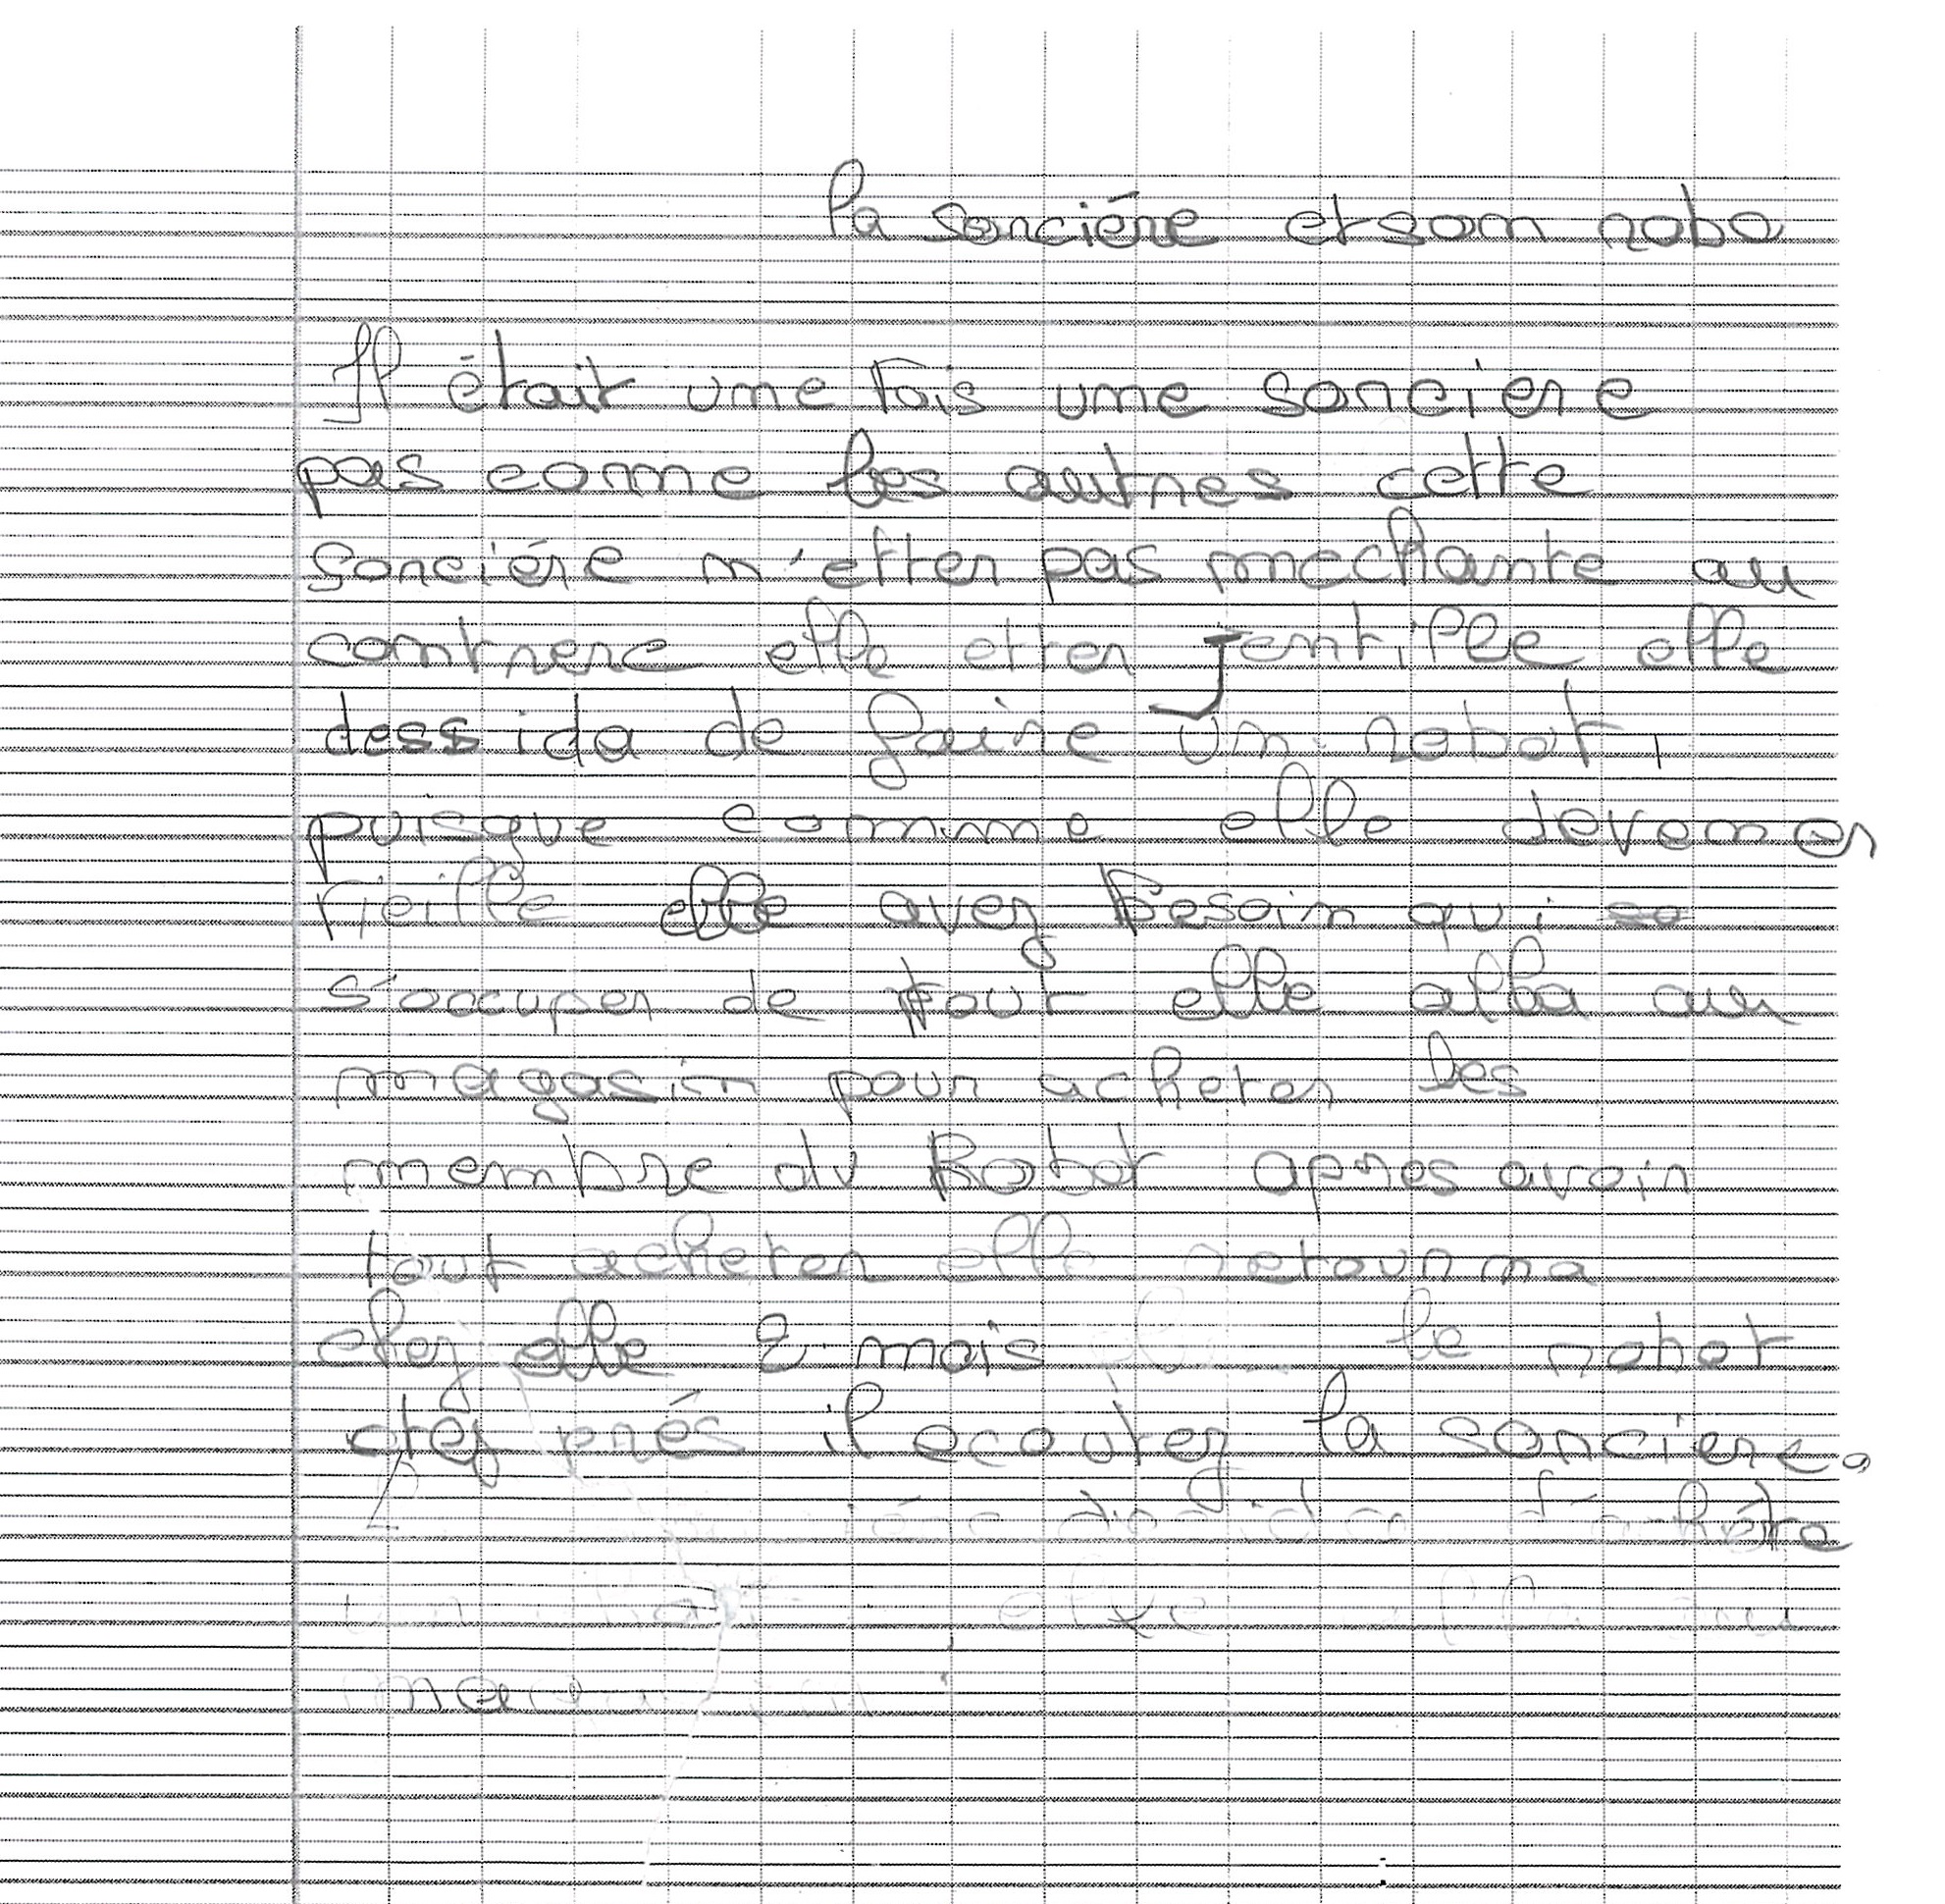 la sorciére et son robo
Il était une fois une sorciere
pas comme les autres cette
sorciére n'etter pas mechante au
contrere elle etter jentille elle
dessida de faire un robot,
puisque comme elle devener
vieille elle avez besoin qui
s'occuper de tout elle alla au
magasin pour acheter les
membre du Robot apres avoir
tout acheter elle retourna
chez elle 2 mois le robot
etez prés il ecouter la sorciere.